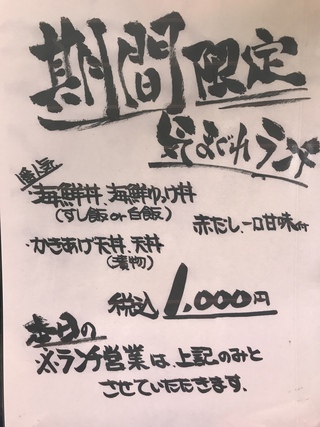 期間限定
気まぐれランチ
人気
・海鮮丼、海鮮ゆっけ丼
(すし飯or白飯)
赤だし、一口甘味付
・かきあげ天丼、天丼
(漬物)
税込 1,000円
本日の
ランチ営業は、上記のみと
させていただきます、